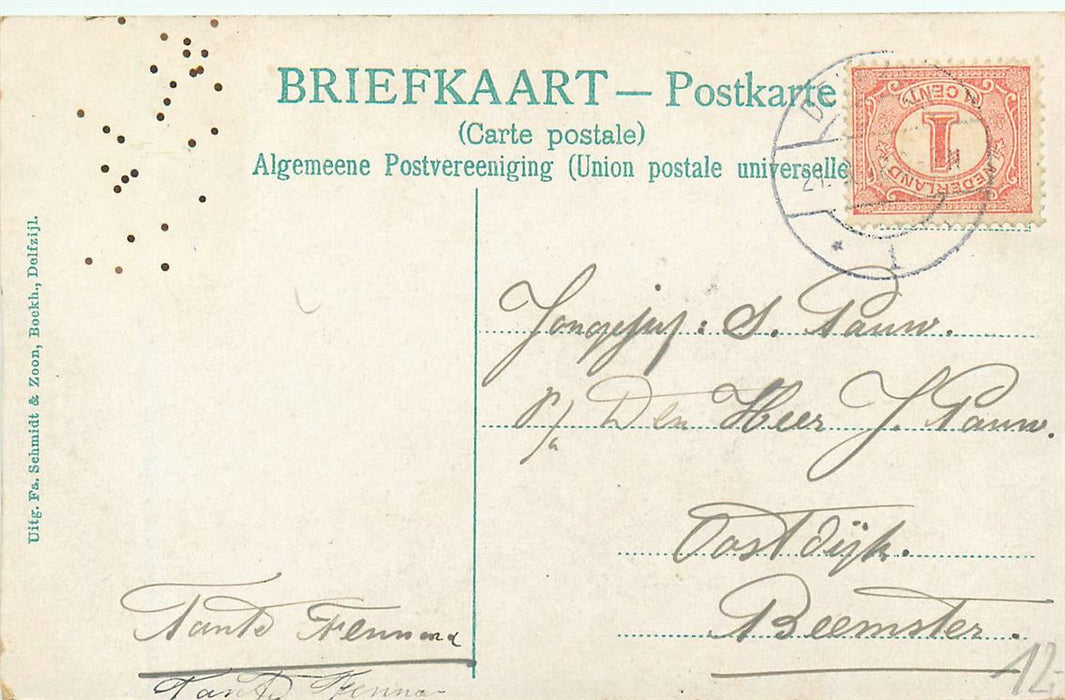 BRIEFKAART — Postkarte
(Carte postale)
Algemeene Postvereeniging (Union postale universelle
1 CENT
1
NEDERLAND
21.
1
Uitg. Fa. Schmidt & Zoon, Boekh., Delfzijl.
S. Pauw.
p/a Den Heer J. Pauw.
Oostdijk.
Beemster.
Tante
Tante Fenna
12-